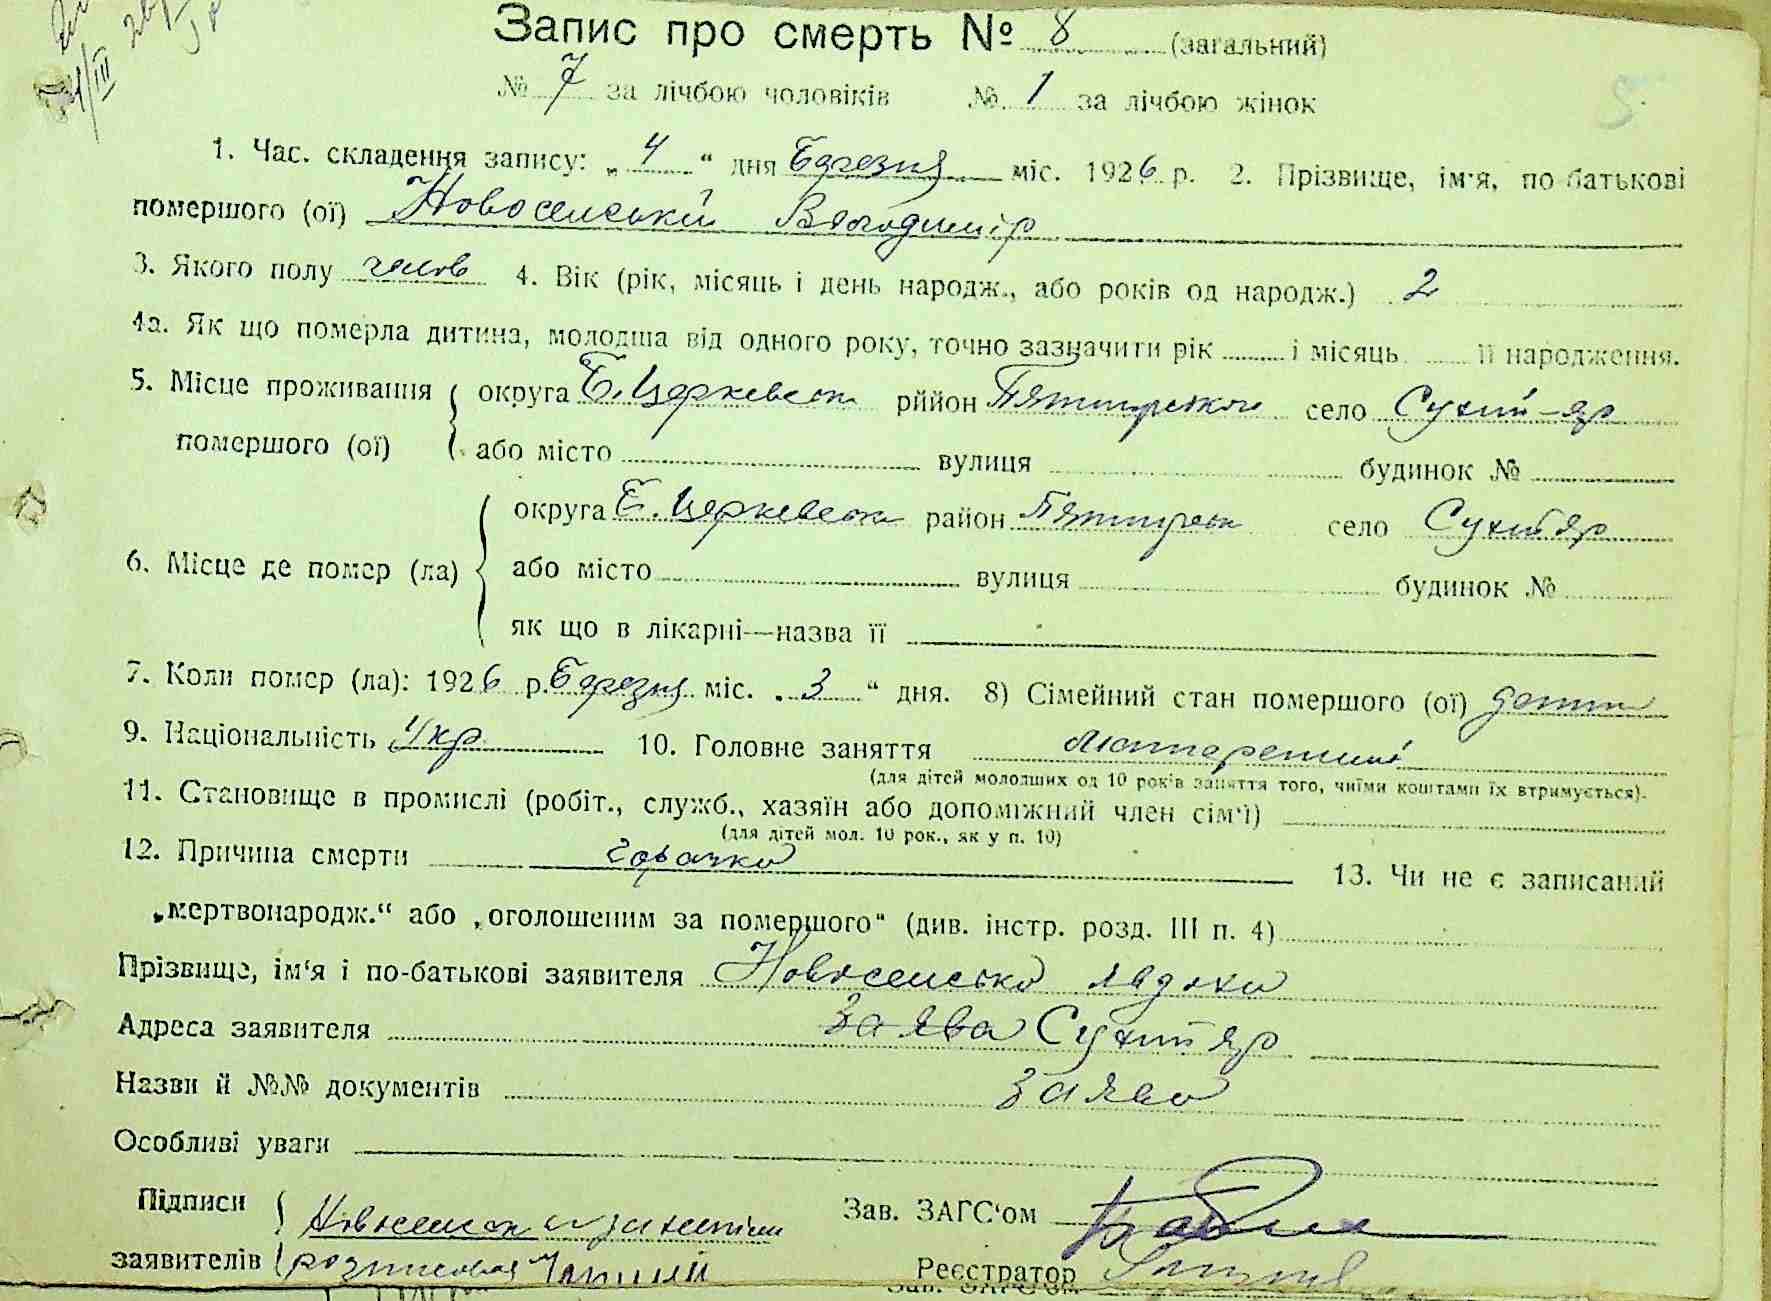 Запис про смерть № 8 (загальний)
№ 7 за лічбою чоловіків № 1 за лічбою жінок
5
1. Час. складення запису: „ 4 “ дня Березня міс. 1926 р. 2. Прізвище, ім'я, по батькові
помершого (ої) Новосельській Володимір
3. Якого полу чолов 4. Вік (рік, місяць і день народж., або років од народж.) 2
4а. Як що померла дитина, молодша від одного року, точно зазначити рік і місяць її народження.
5. Місце проживання округа Б. Церкевськ рййон Пятигорського село Сухий-яр
помершого (ої) або місто вулиця будинок №
округа Б. Церкевськ район Пятигорськ село Сухий яр
6. Місце де помер (ла) або місто вулиця будинок №
як що в лікарні—назва її
7. Коли помер (ла): 1926 р. Березня міс. „ 3 “ дня. 8) Сімейний стан помершого (ої)
9. Національність Укр. 10. Головне заняття
(для дітей молодших од 10 років заняття того, чиїми коштами їх втримується).
11. Становище в промислі (робіт., служб., хазяїн або допоміжний член сім'ї)
(для дітей мол. 10 рок., як у п. 10)
12. Причина смерти горачка 13. Чи не є записаний
„мертвонародж.“ або „оголошеним за помершого“ (див. інстр. розд. III п. 4)
Прізвище, ім'я і по-батькові заявителя Новосельська Явдоха
Адреса заявителя заява Сухий яр
Назви й №№ документів заява
Особливі уваги
Підписи Зав. ЗАГС'ом
заявителів Реєстратор